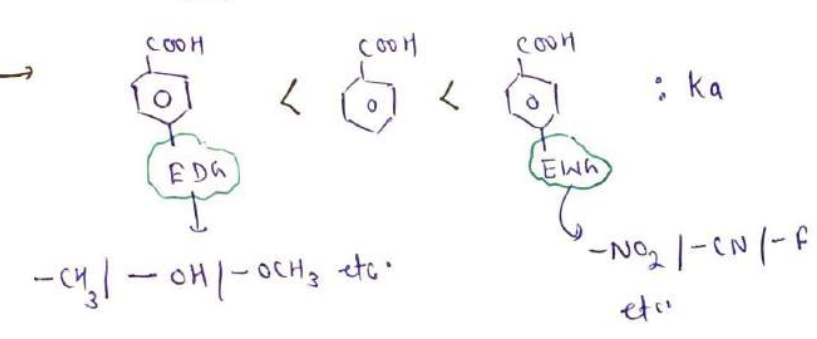 → COOH < COOH < COOH : Ka
EDG EWG
-CH3 | - OH | - OCH3 etc. -NO2 | -CN | -F
etc.